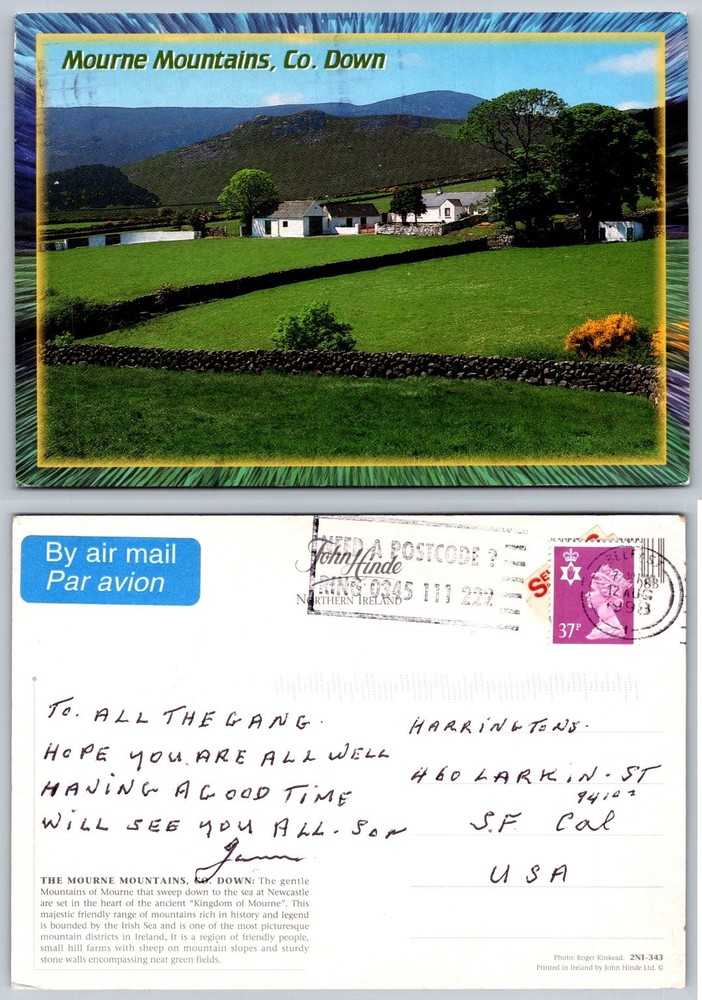 Mourne Mountains, Co. Down
By air mail
Par avion
NEED A POSTCODE ?
RING 0345 111 222
John Hinde
NORTHERN IRELAND
BELFAST
12 AUG
1998
37P
TO. ALL THE GANG.
HOPE YOU ARE ALL WELL
HAVING A GOOD TIME
WILL SEE YOU ALL. SON
HARRINGTONS.
460 LARKIN. ST
94102
S.F. Cal
USA
THE MOURNE MOUNTAINS, CO. DOWN: The gentle
Mountains of Mourne that sweep down to the sea at Newcastle
are set in the heart of the ancient "Kingdom of Mourne". This
majestic friendly range of mountains rich in history and legend
is bounded by the Irish Sea and is one of the most picturesque
mountain districts in Ireland, It is a region of friendly people,
small hill farms with sheep on mountain slopes and sturdy
stone walls encompassing neat green fields.
Photo: Roger Kinkead. 2NI-343
Printed in Ireland by John Hinde Ltd. ©